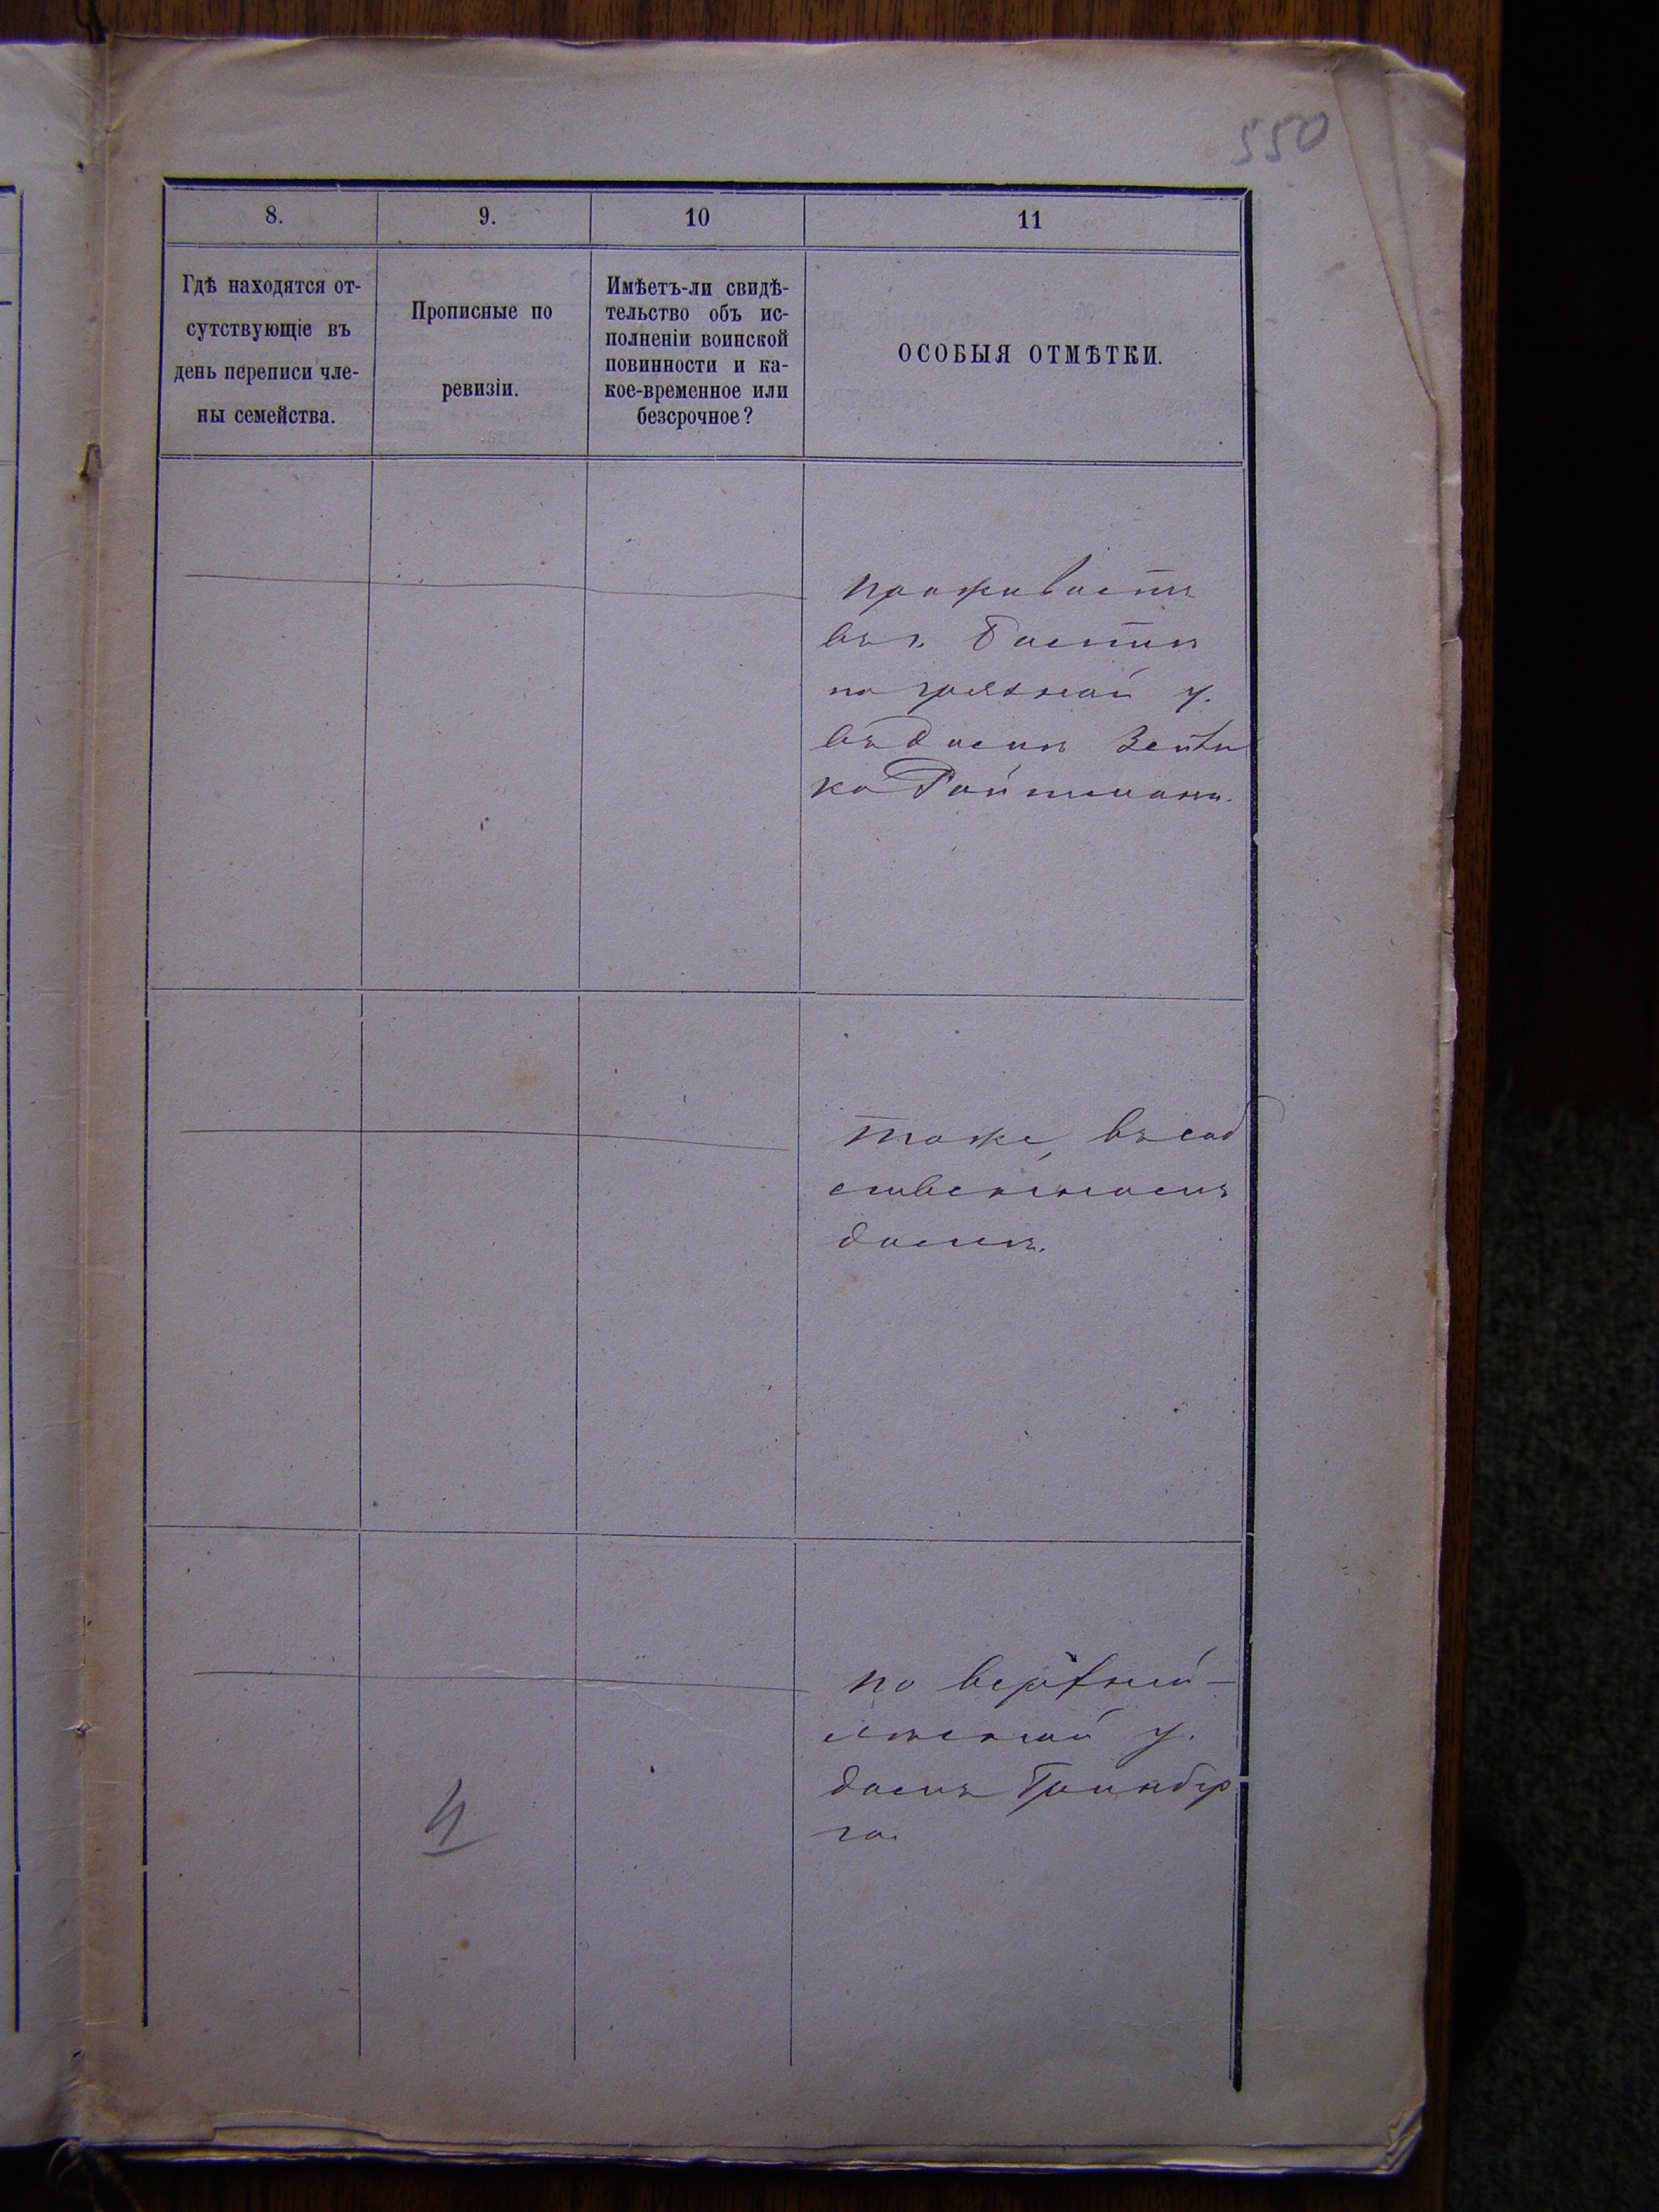 550
8.
9.
10
11
Гдѣ находятся от-
сутствующіе въ
день переписи чле-
ны семейства.
Прописные по
ревизіи.
Имѣетъ-ли свидѣ-
тельство объ ис-
полненіи воинской
повинности и ка-
кое-временное или
безсрочное?
ОСОБЫЯ ОТМѢТКИ.
проживаетъ
въ г.
по грязной у.
въ домѣ
ка Ройтмана.
тоже, въ соб
ственномъ
домѣ.
по верхней-
у.
домъ Гринбер
га.
4